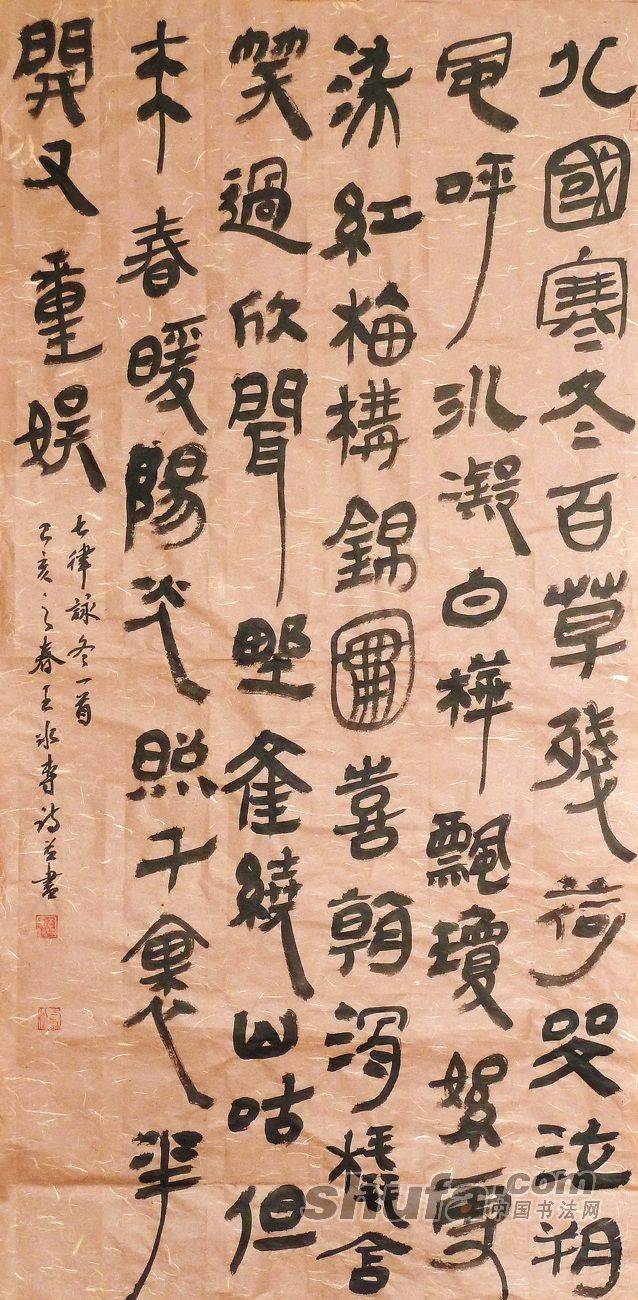 北國寒冬百草殘荷哭泣朔
風呼冰凝白樺飄瓊絮雪
染紅梅構錦圖喜朝含
笑過欣聞野雀繞山咕但
來春暖陽光照千裏華
開又重娛
七律詠冬一首
己亥之春王詩並書
shufa.com
中国书法网